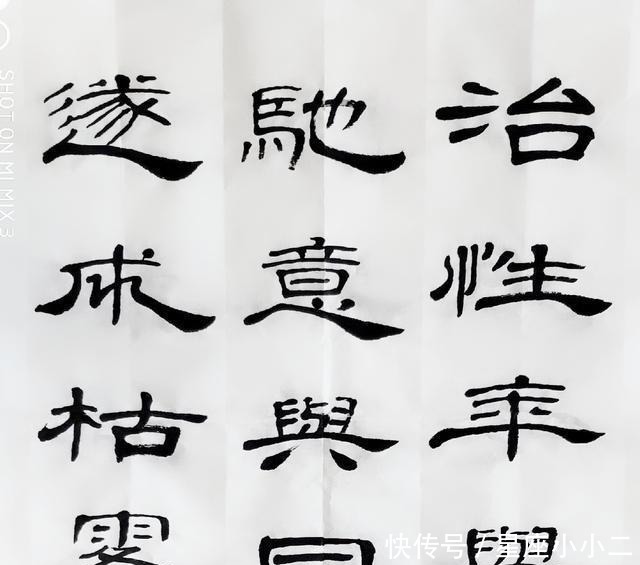 治性年
馳意與
遂成枯
SHOT ON MI MIX 3
快传号 / 星座小小二